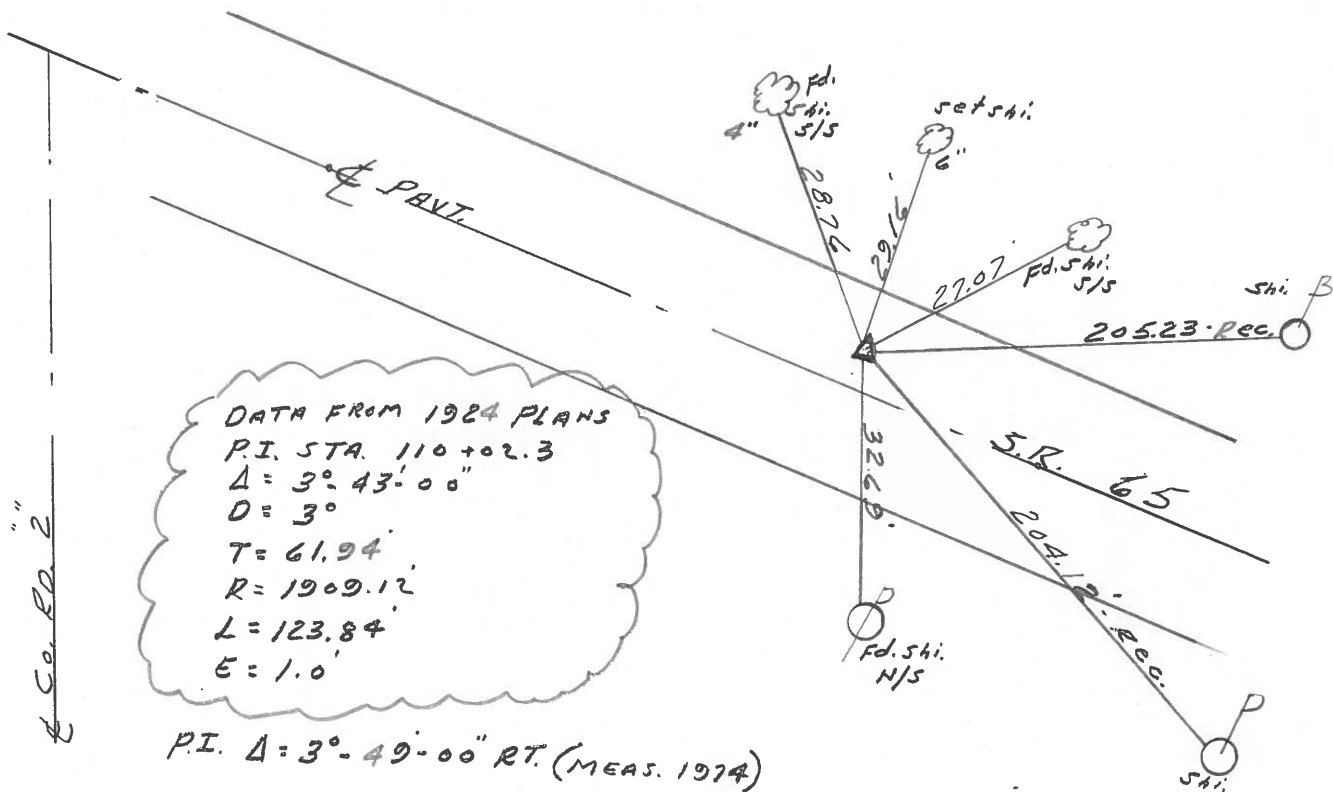 Fd.
Shi.
S/S
4"
set shi.
6"
28.76
29.16'
27.07'
Fd. Shi.
S/S
Shi.
205.23' Rec.
℄ PAVT.
S.R. 65
32.68'
204.12' Rec.
Fd. Shi.
N/S
Shi.
DATA FROM 1924 PLANS
P.I. STA. 110+02.3
Δ = 3°-43'-00"
D = 3°
T = 61.94'
R = 1909.12'
L = 123.84'
E = 1.0'
℄ Co. RD. "2"
P.I. Δ = 3°-49'-00" RT. (MEAS. 1974)